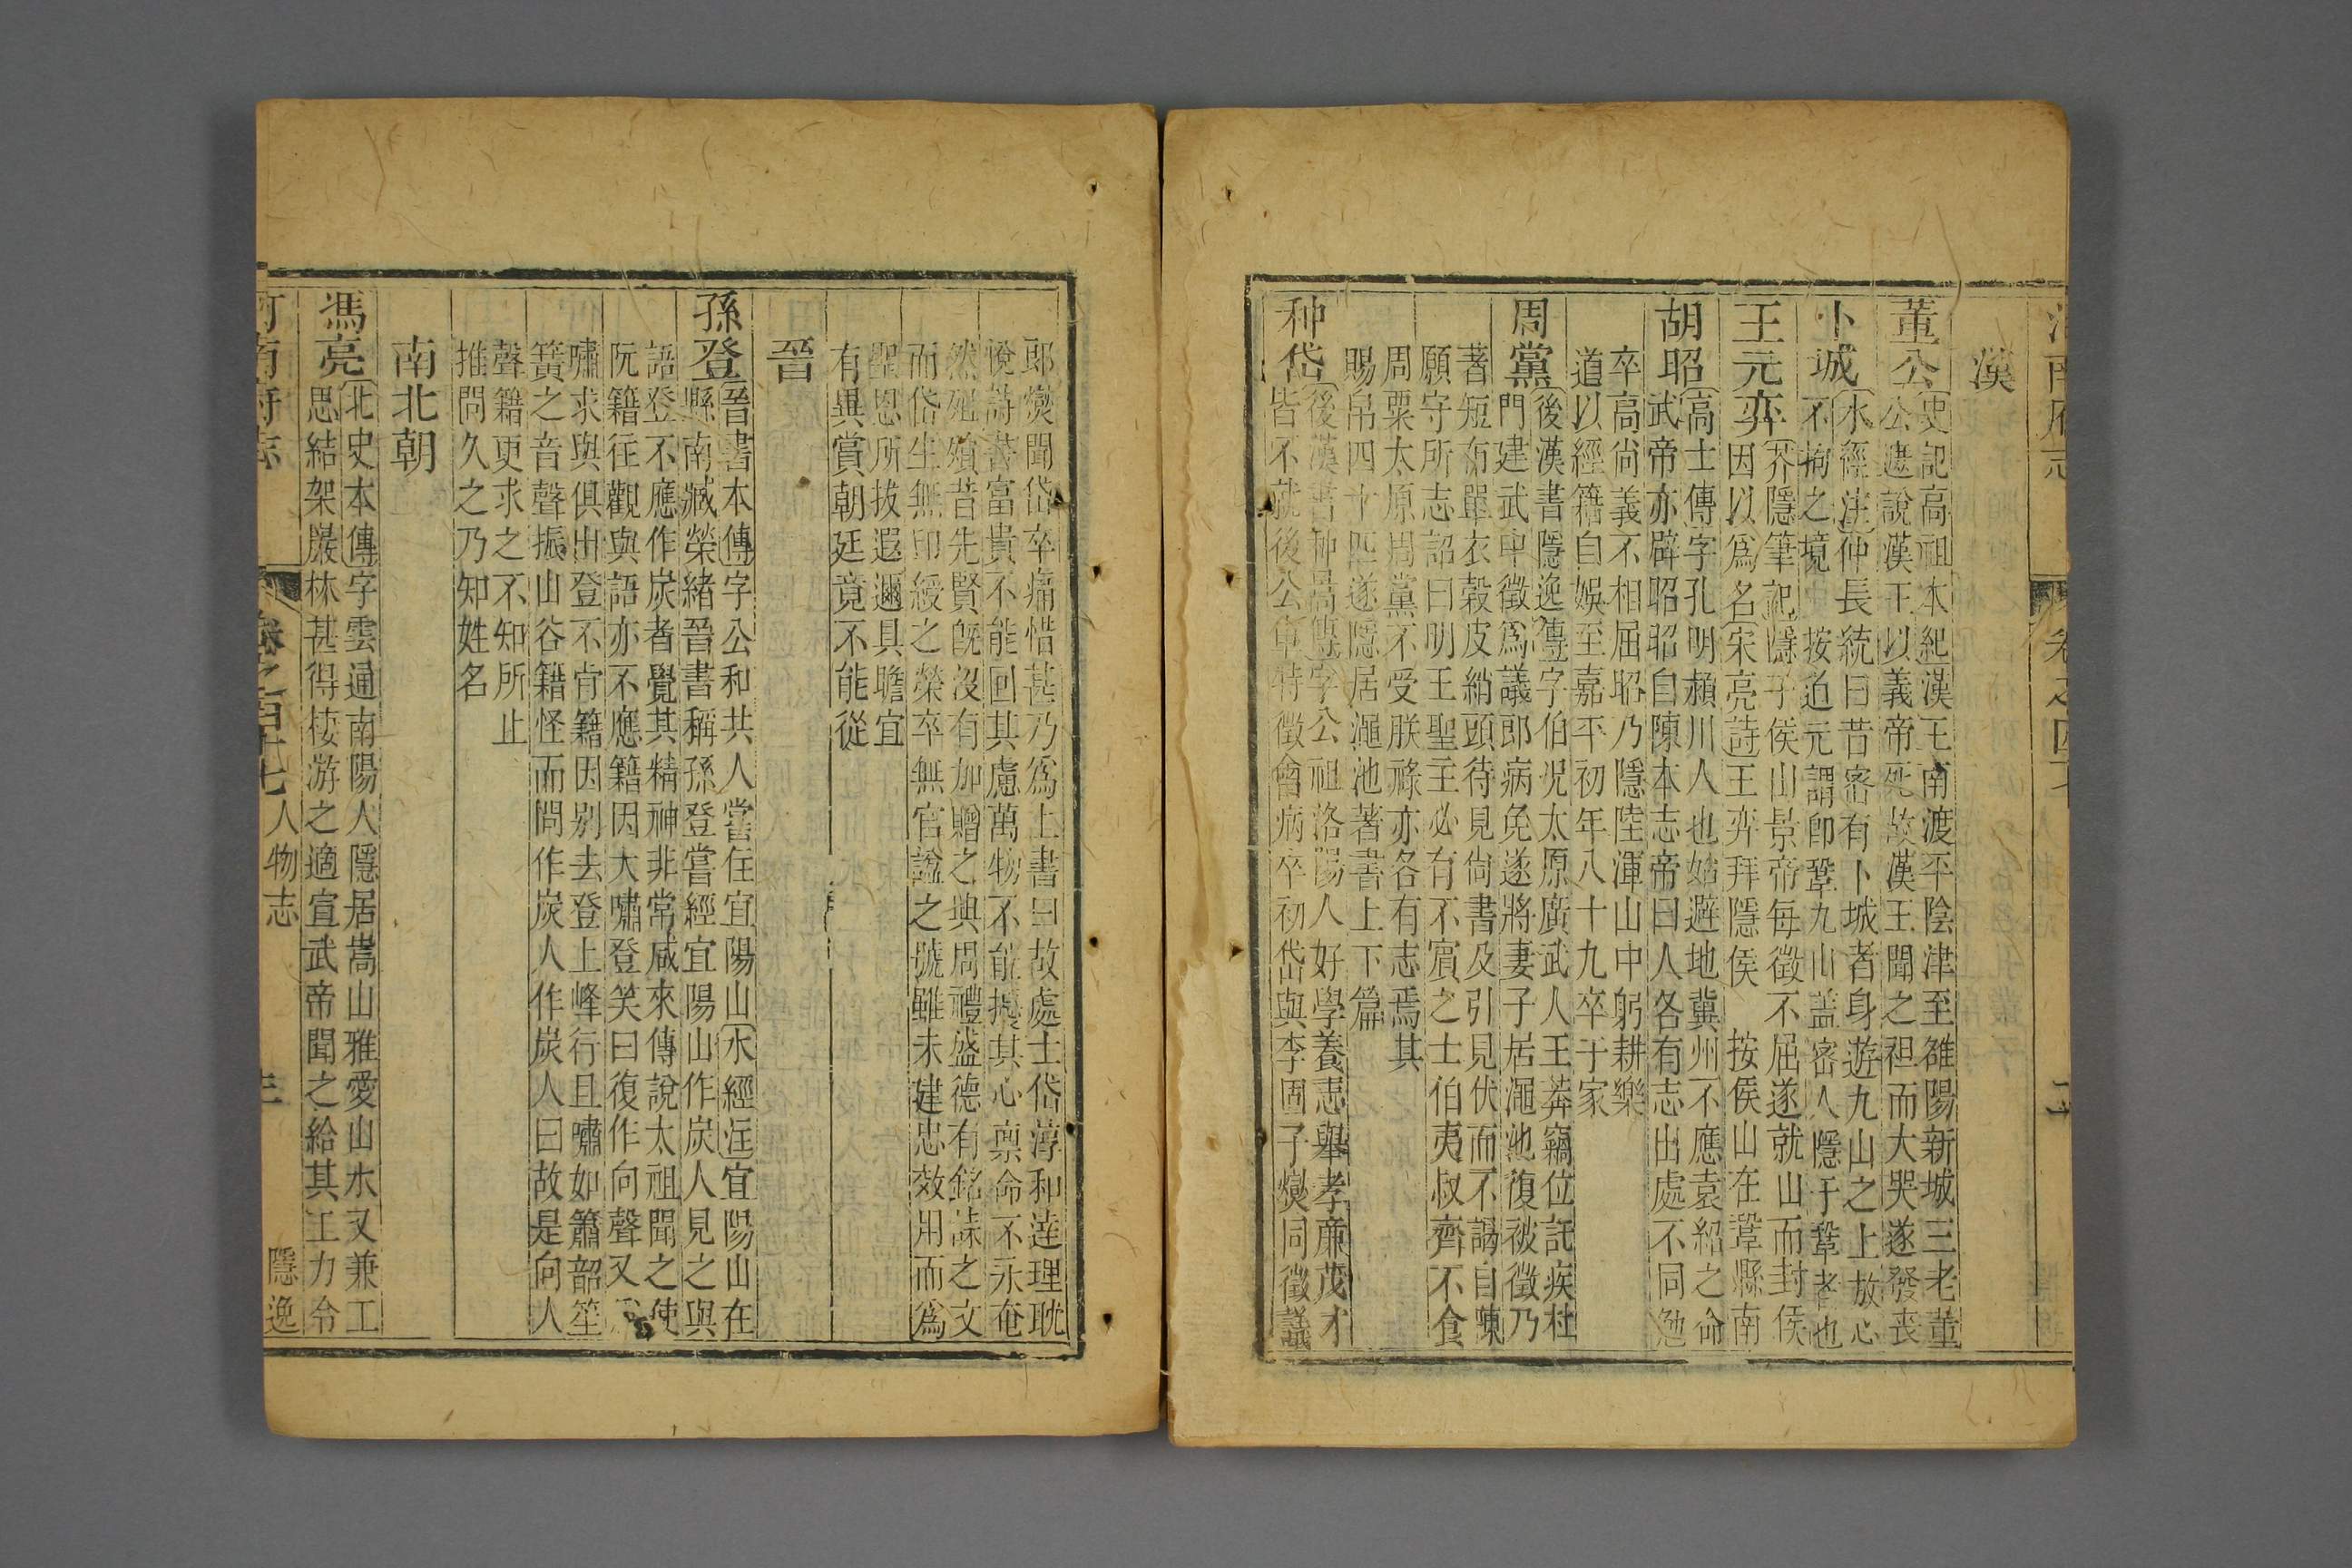 漢
董公
史記高祖本紀漢王南渡平陰津至雒陽新城三老董
公遮說漢王以義帝死故漢王聞之袒而大哭遂發喪
卜城
水經注仲長統曰昔密有卜城者身遊九山之上放心
不拘之境 按道元謂卽鞏九山盖密人隱于鞏者也
王元弈
芥隱筆記隱子侯山景帝每徵不屈遂就山而封侯
因以爲名宋亮詩王弈拜隱侯 按侯山在鞏縣南
胡昭
高士傳字孔明潁川人也始避地冀州不應袁紹之命
武帝亦辟昭昭自陳本志帝曰人各有志出處不同勉
卒高尚義不相屈昭乃隱陸渾山中躬耕樂
道以經籍自娛至嘉平初年八十九卒于家
周黨
後漢書隱逸傳字伯況太原廣武人王莽竊位託疾杜
門建武中徵爲議郎病免遂將妻子居澠池復被徵乃
著短布單衣榖皮綃頭待見尚書及引見伏而不謁自陳
願守所志詔曰明王聖主必有不賔之士伯夷叔齊不食
周粟太原周黨不受朕祿亦各有志焉其
賜帛四十匹遂隱居澠池著書上下篇
种岱
後漢書种暠傳字公祖洛陽人好學養志舉孝廉茂才
皆不就後公車特徵會病卒初岱與李固子燮同徵議
郎燮聞岱卒痛惜甚乃爲上書曰故處士岱淳和達理耽
悅詩書富貴不能回其慮萬物不能擾其心稟命不永奄
然殂殞昔先賢旣沒有加贈之典周禮盛德有銘誄之文
而岱生無印綬之榮卒無官諡之號雖未建忠效用而爲
聖恩所拔遐邇具瞻宜
有異賞朝廷竟不能從
晉
孫登
晉書本傳字公和共人嘗住宜陽山水經注宜陽山在
縣南臧榮緒晉書稱孫登嘗經宜陽山作炭人見之與
語登不應作炭者覺其精神非常咸來傳說太祖聞之使
阮籍往觀與語亦不應籍因大嘯登笑曰復作向聲又
嘯求與俱出登不肯籍因別去登上峰行且嘯如簫韶笙
簧之音聲振山谷籍怪而問作炭人作炭人曰故是向人
聲籍更求之不知所止
推問久之乃知姓名
南北朝
馮亮
北史本傳字雲通南陽人隱居嵩山雅愛山水又兼工
思結架巖林甚得棲游之適宣武帝聞之給其工力令
河南府志 卷之百十七 人物志 三 隱逸